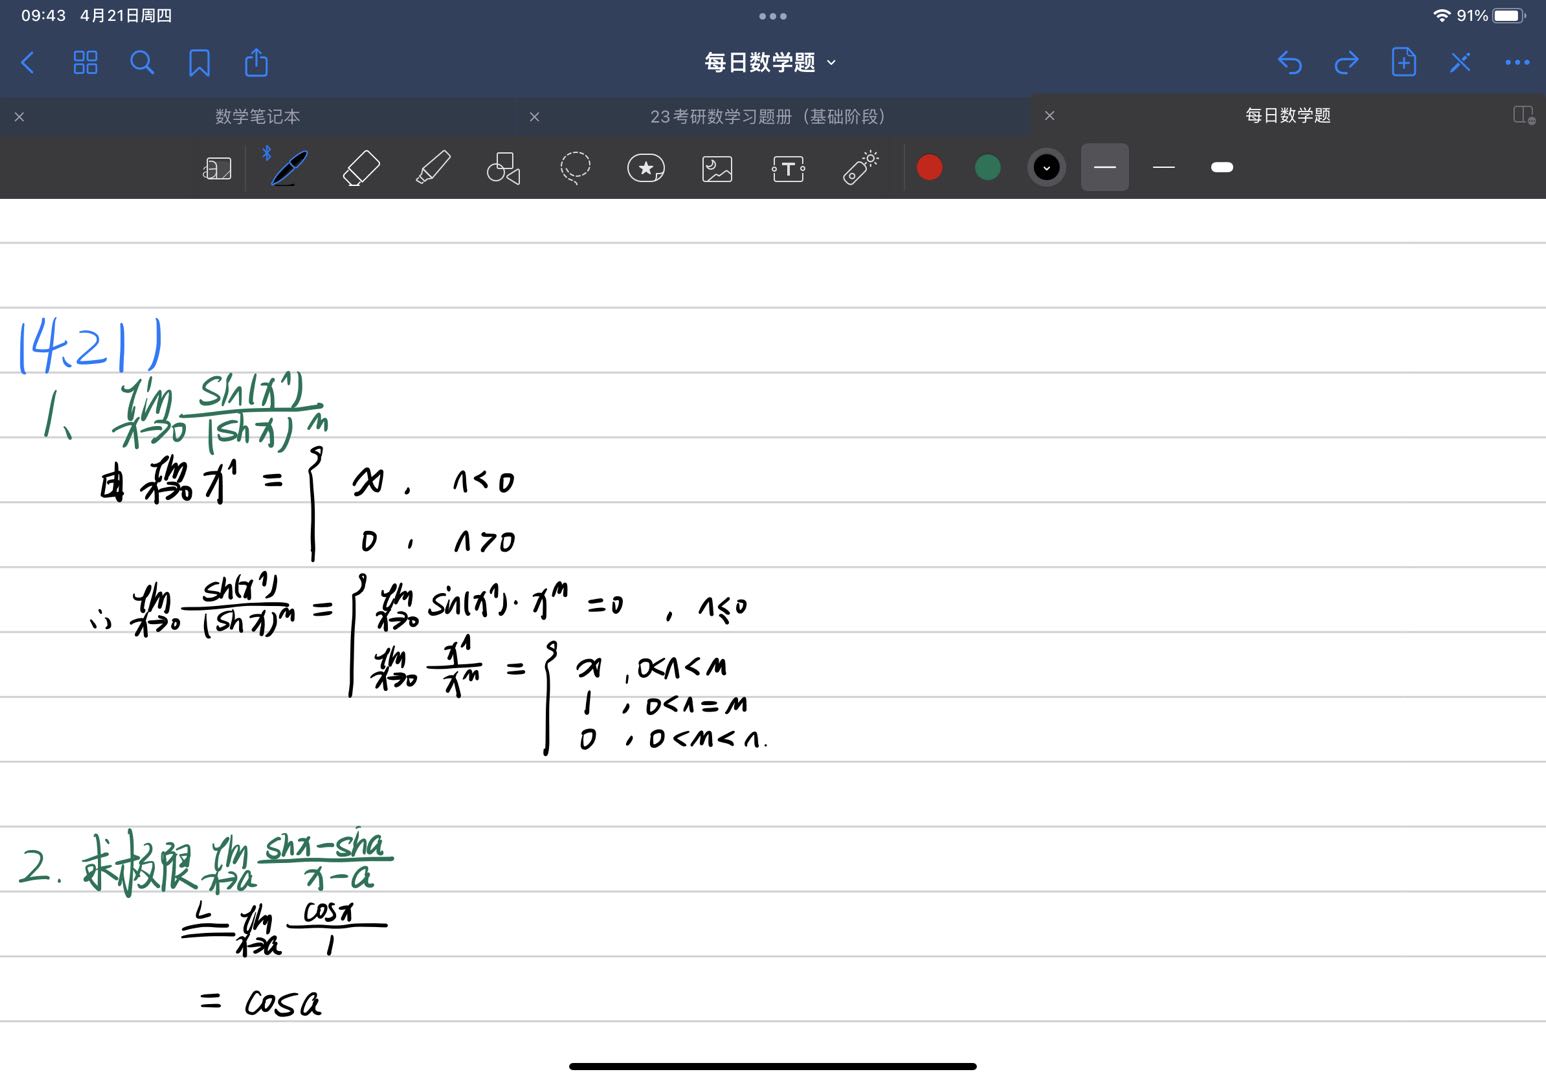 09:43 4月21日周四
91%
每日数学题
数学笔记本
23考研数学习题册（基础阶段）
每日数学题
T
(4.21)
1、 lim x→0 sin(xⁿ)/(sin x)ᵐ
由 lim x→0 xⁿ = { ∞, n<0
0, n>0
∴ lim x→0 sin(xⁿ)/(sin x)ᵐ = { lim x→0 sin(xⁿ)·xᵐ = 0, n≤0
lim x→0 xⁿ/xᵐ = { ∞, 0<n<m
1, 0<n=m
0, 0<m<n.
2. 求极限 lim x→a (sin x − sin a)/(x−a)
=ᴸ lim x→a cos x/1
= cos a